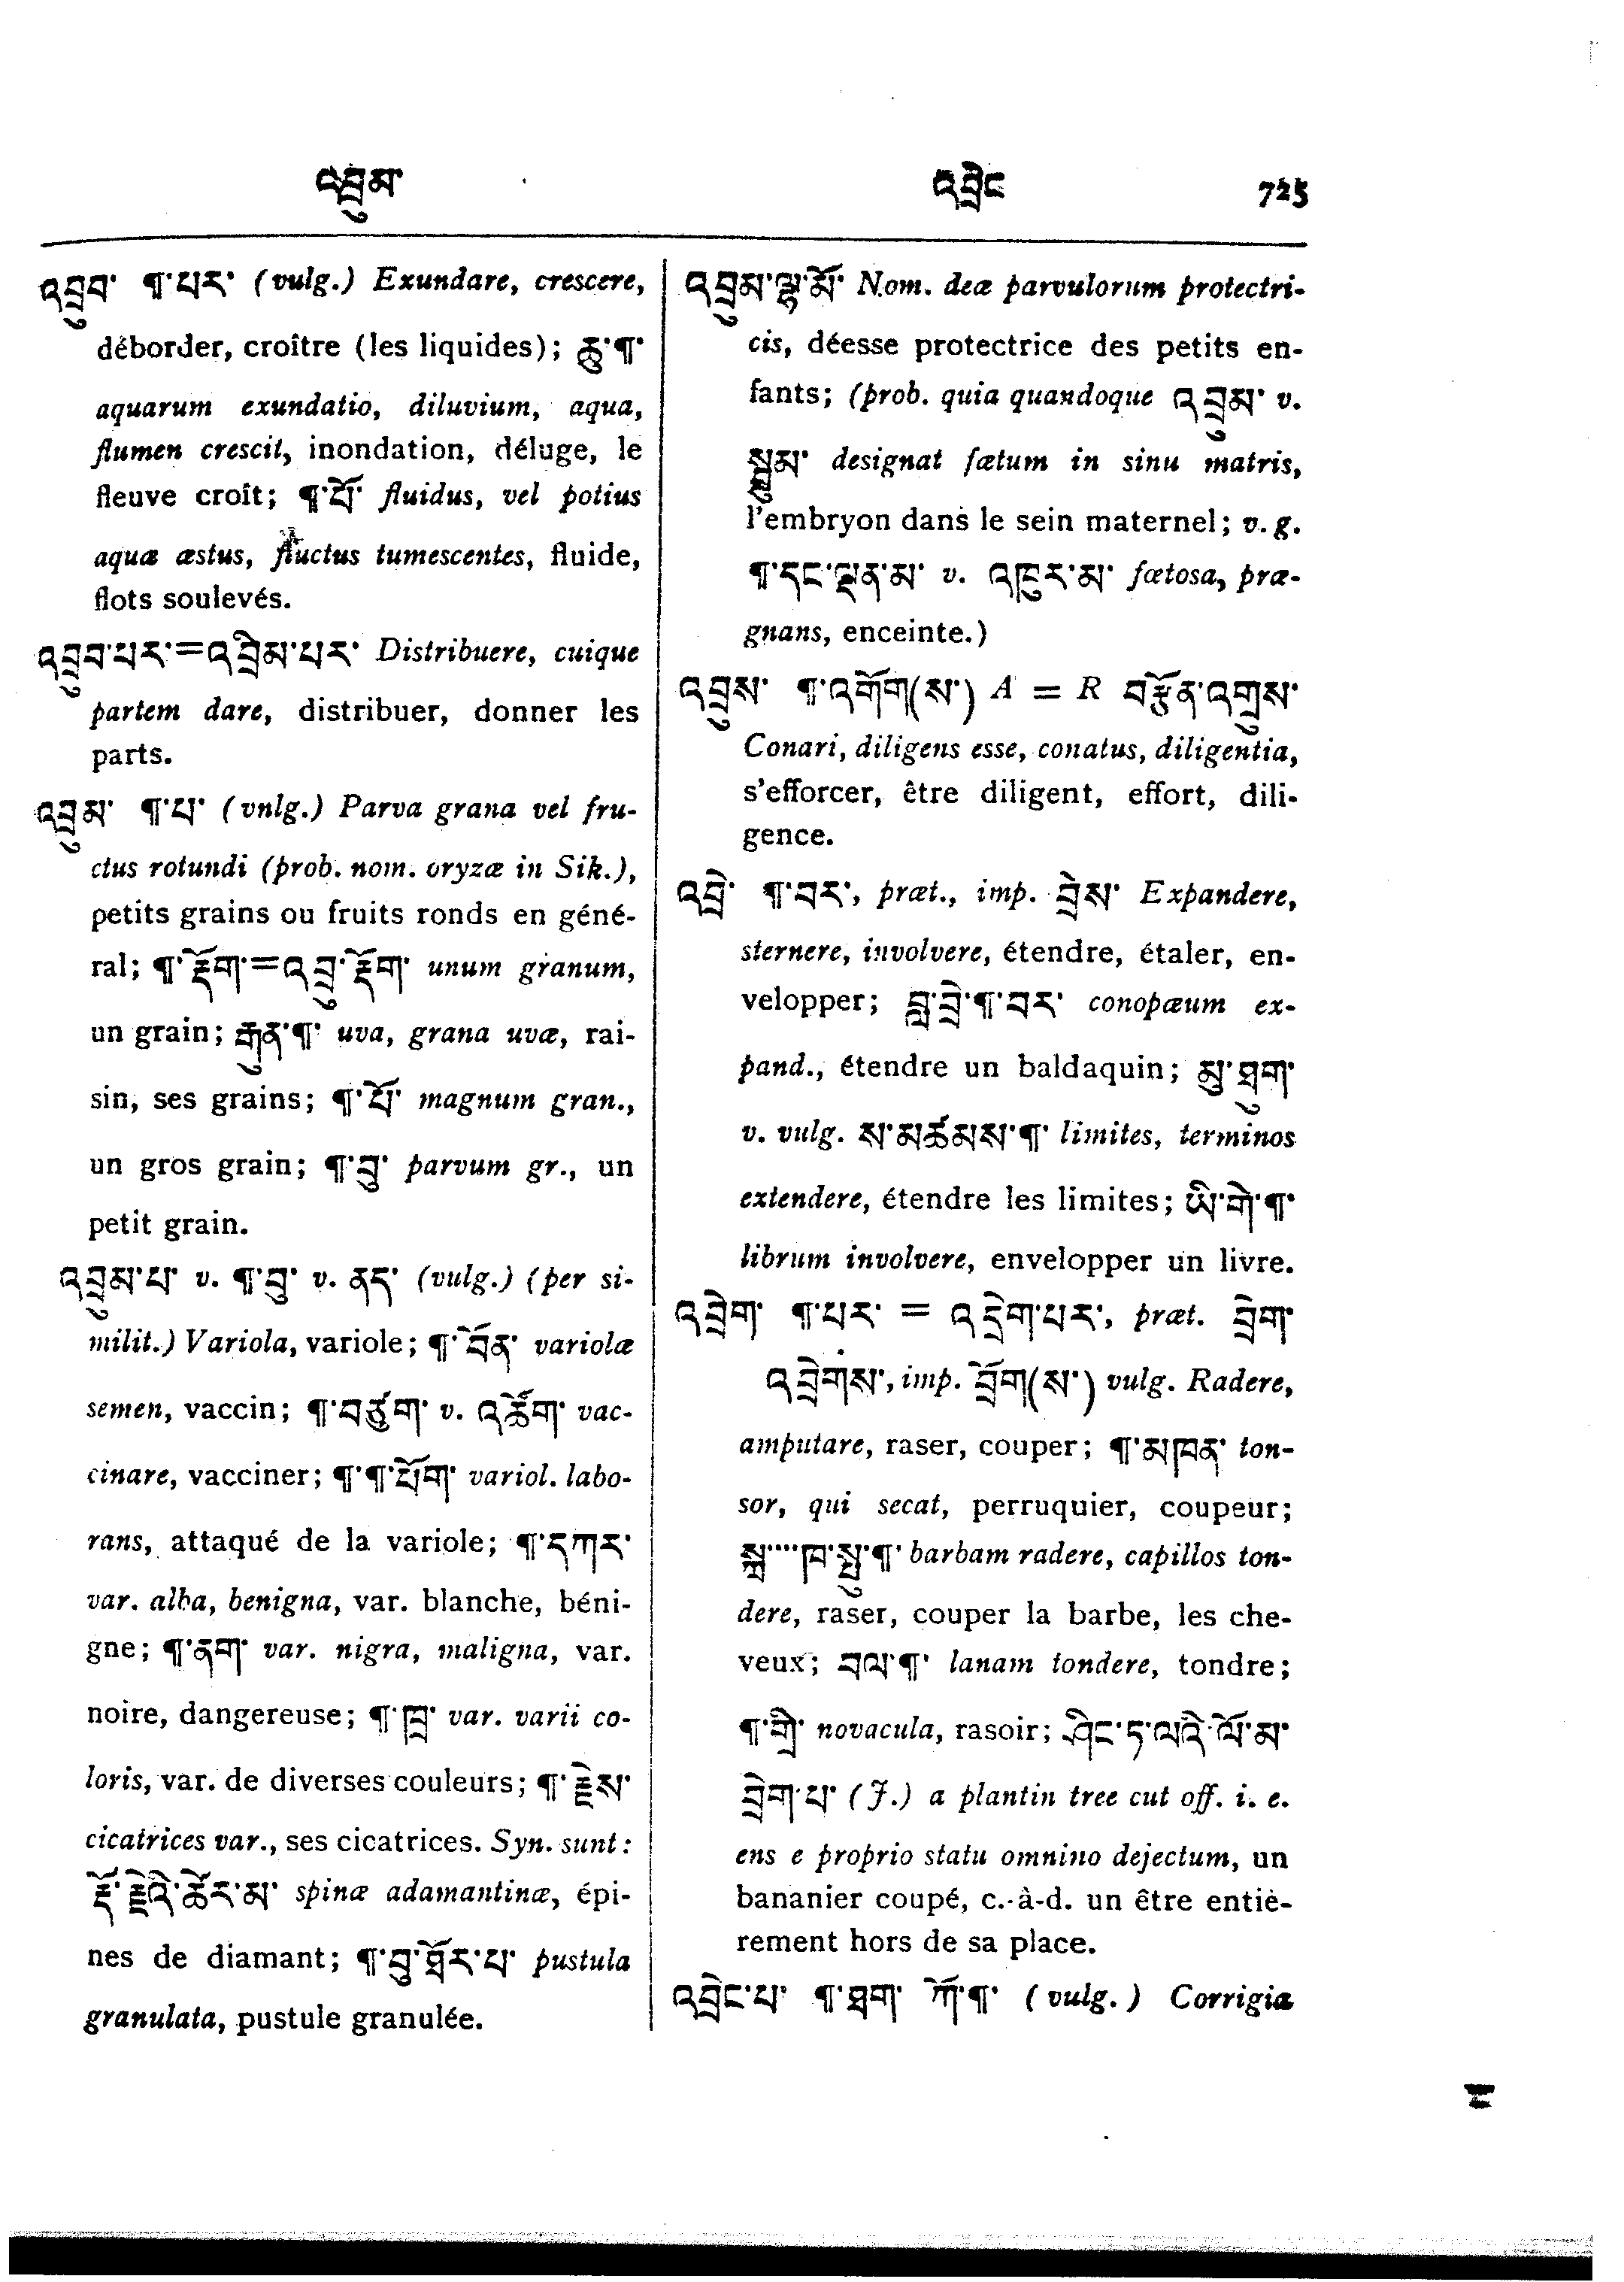 འབྲུམ་ འབྲེང 725
འབྲུབ་ ¶་པར་ (vulg.) Exundare, crescere,
déborder, croître (les liquides); ཆུ་¶་
aquarum exundatio, diluvium, aqua,
flumen crescit, inondation, déluge, le
fleuve croît; ¶་པོ་ fluidus, vel potius
aquæ æstus, fluctus tumescentes, fluide,
flots soulevés.
འབྲུབ་པར་=འབྲིམ་པར་ Distribuere, cuique
partem dare, distribuer, donner les
parts.
འབྲུམ་ ¶་པ་ (vnlg.) Parva grana vel fru-
ctus rotundi (prob. nom. oryzæ in Sik.),
petits grains ou fruits ronds en géné-
ral; ¶་རྡོག་=འབྲུ་རྡོག་ unum granum,
un grain; རྒུན་¶་ uva, grana uvæ, rai-
sin, ses grains; ¶་པོ་ magnum gran.,
un gros grain; ¶་བུ་ parvum gr., un
petit grain.
འབྲུམ་པ་ v. ¶་བུ་ v. ནད་ (vulg.) (per si-
milit.) Variola, variole; ¶་བོན་ variolæ
semen, vaccin; ¶་བཙུག་ v. འཚོག་ vac-
cinare, vacciner; ¶་¶་པོག་ variol. labo-
rans, attaqué de la variole; ¶་དཀར་
var. alba, benigna, var. blanche, béni-
gne; ¶་ནག་ var. nigra, maligna, var.
noire, dangereuse; ¶་ཁྲ་ var. varii co-
loris, var. de diverses couleurs; ¶་རྗེས་
cicatrices var., ses cicatrices. Syn. sunt:
རྡོ་རྗེའི་ཚེར་མ་ spinæ adamantinæ, épi-
nes de diamant; ¶་བུ་ཐོར་པ་ pustula
granulata, pustule granulée.
འབྲུམ་ལྷ་མོ་ Nom. deæ parvulorum protectri-
cis, déesse protectrice des petits en-
fants; (prob. quia quandoque འབྲུམ་ v.
སྦྲུམ་ designat fœtum in sinu matris,
l'embryon dans le sein maternel; v. g.
¶་དང་ལྡན་མ་ v. འཁུར་མ་ fœtosa, præ-
gnans, enceinte.)
འབྲུས་ ¶་འགོག(ས་) A = R བརྩོན་འགྲུས་
Conari, diligens esse, conatus, diligentia,
s'efforcer, être diligent, effort, dili-
gence.
འབྲེ་ ¶་བར་, præt., imp. བྲེས་ Expandere,
sternere, involvere, étendre, étaler, en-
velopper; བླ་བྲེ་¶་བར་ conopæum ex-
pand., étendre un baldaquin; མུ་ཐུག་
v. vulg. ས་མཚམས་¶་ limites, terminos
extendere, étendre les limites; ཡི་གེ་¶་
librum involvere, envelopper un livre.
འབྲེག་ ¶་པར་ = འདྲེག་པར་, præt. བྲེག་
འབྲེགས་, imp. བྲོག(ས་) vulg. Radere,
amputare, raser, couper; ¶་མཁན་ ton-
sor, qui secat, perruquier, coupeur;
སྐྲ་···ཁ་སྤུ་¶་ barbam radere, capillos ton-
dere, raser, couper la barbe, les che-
veux; བལ་¶་ lanam tondere, tondre;
¶་གྲི་ novacula, rasoir; ཤིང་ཏ་ལའི་ལོ་མ་
བྲེག་པ་ (J.) a plantin tree cut off. i. e.
ens e proprio statu omnino dejectum, un
bananier coupé, c.-à-d. un être entiè-
rement hors de sa place.
འབྲེང་པ་ ¶་ཐག་ ཀོ་¶་ (vulg.) Corrigia